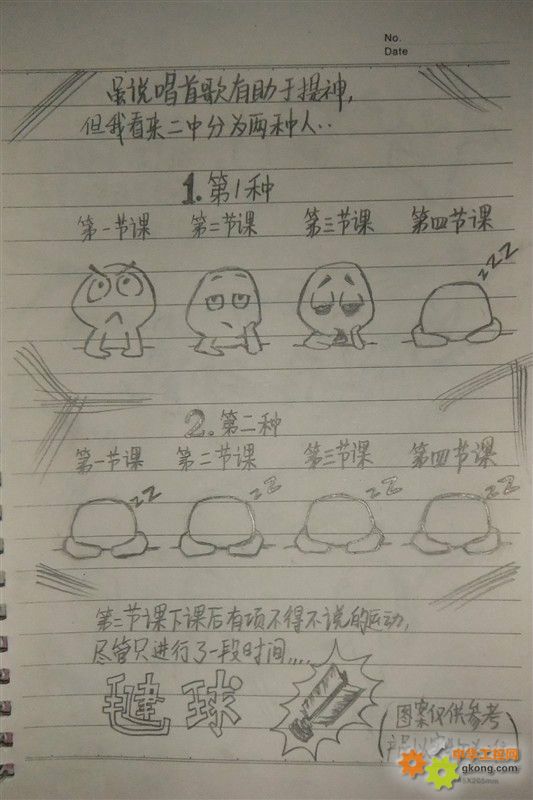 No.
Date
虽说唱首歌有助于提神,
但我看来二中分为两种人..
1.第1种
第一节课 第二节课 第三节课 第四节课
zZZ
2.第二种
第一节课 第二节课 第三节课 第四节课
zZ zZ zZ zZ
第二节课下课后有项不得不说的运动,
尽管只进行了一段时间....
毽球
图案仅供参考
中华工控网
gkong.com